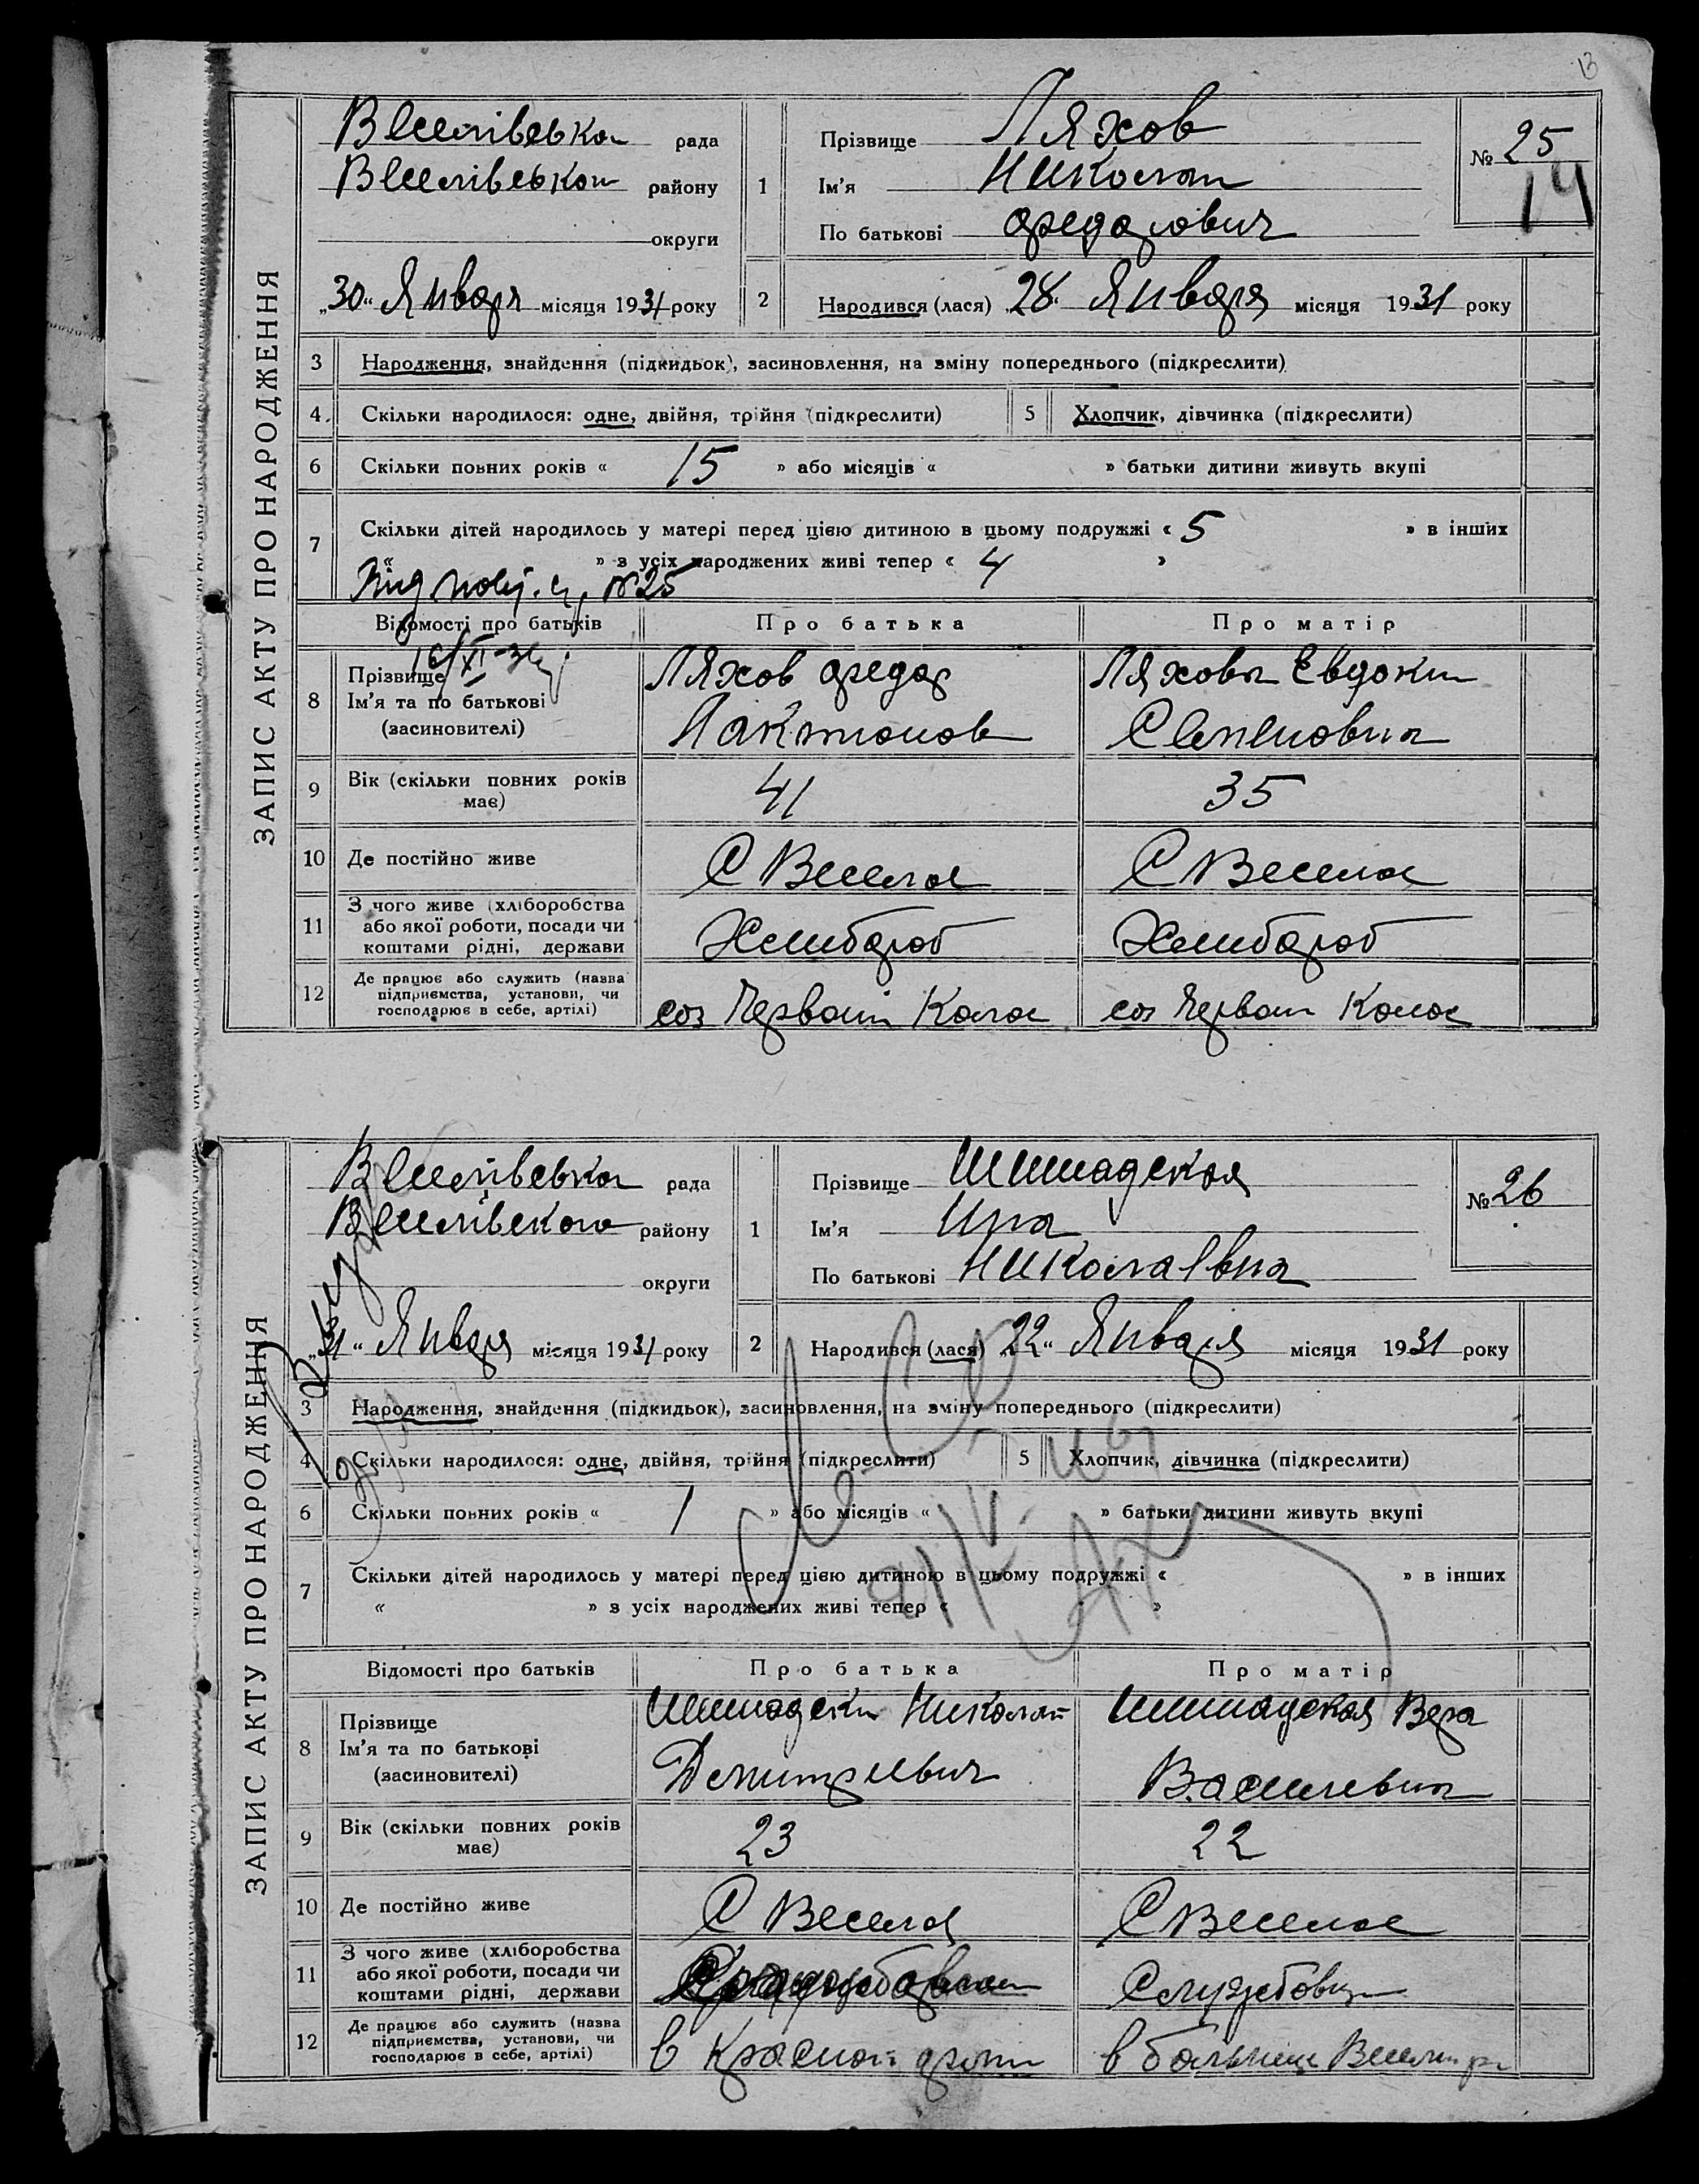 13
ЗАПИС АКТУ ПРО НАРОДЖЕННЯ
Веселівська рада
Веселівського району
округи
„30“ Января місяця 1931 року
1 Прізвище Ляхов
Ім'я Николай
По батькові Федорович
№ 25
14
2 Народився (лася) „28“ Января місяця 1931 року
3 Народження, знайдення (підкидьок), засиновлення, на зміну попереднього (підкреслити)
4. Скільки народилося: одне, двійня, трійня (підкреслити) 5 Хлопчик, дівчинка (підкреслити)
6 Скільки повних років « 15 » або місяців « » батьки дитини живуть вкупі
7 Скільки дітей народилось у матері перед цією дитиною в цьому подружжі « 5 » в інших
« » з усіх народжених живі тепер « 4 »
№25
Відомості про батьків Про батька Про матір
8 Прізвище
Ім'я та по батькові
(засиновителі)
Ляхов Федор
Лактионов
Ляхова Евдоки
Семеновна
9 Вік (скільки повних років має) 41 35
10 Де постійно живе С Веселое С Веселое
11 З чого живе (хліборобства
або якої роботи, посади чи
коштами рідні, держави
Хлибороб Хлибороб
12 Де працює або служить (назва
підприємства, установи, чи
господарює в себе, артілі)
соз Червоний Колос соз Червоний Колос
ЗАПИС АКТУ ПРО НАРОДЖЕННЯ
Веселівська рада
Веселівського району
округи
„31“ Января місяця 1931 року
1 Прізвище
Ім'я
По батькові Николаевна
№ 26
2 Народився (лася) „22“ Января місяця 1931 року
3 Народження, знайдення (підкидьок), засиновлення, на зміну попереднього (підкреслити)
4 Скільки народилося: одне, двійня, трійня (підкреслити) 5 Хлопчик, дівчинка (підкреслити)
6 Скільки повних років « 1 » або місяців « » батьки дитини живуть вкупі
7 Скільки дітей народилось у матері перед цією дитиною в цьому подружжі « » в інших
« » з усіх народжених живі тепер « »
Відомості про батьків Про батька Про матір
8 Прізвище
Ім'я та по батькові
(засиновителі)
Николай
Дмитриевич
Вера
Василевна
9 Вік (скільки повних років має) 23 22
10 Де постійно живе С Веселое С Веселое
11 З чого живе (хліборобства
або якої роботи, посади чи
коштами рідні, держави
Службовец
12 Де працює або служить (назва
підприємства, установи, чи
господарює в себе, артілі)
в Красной арми в больнице